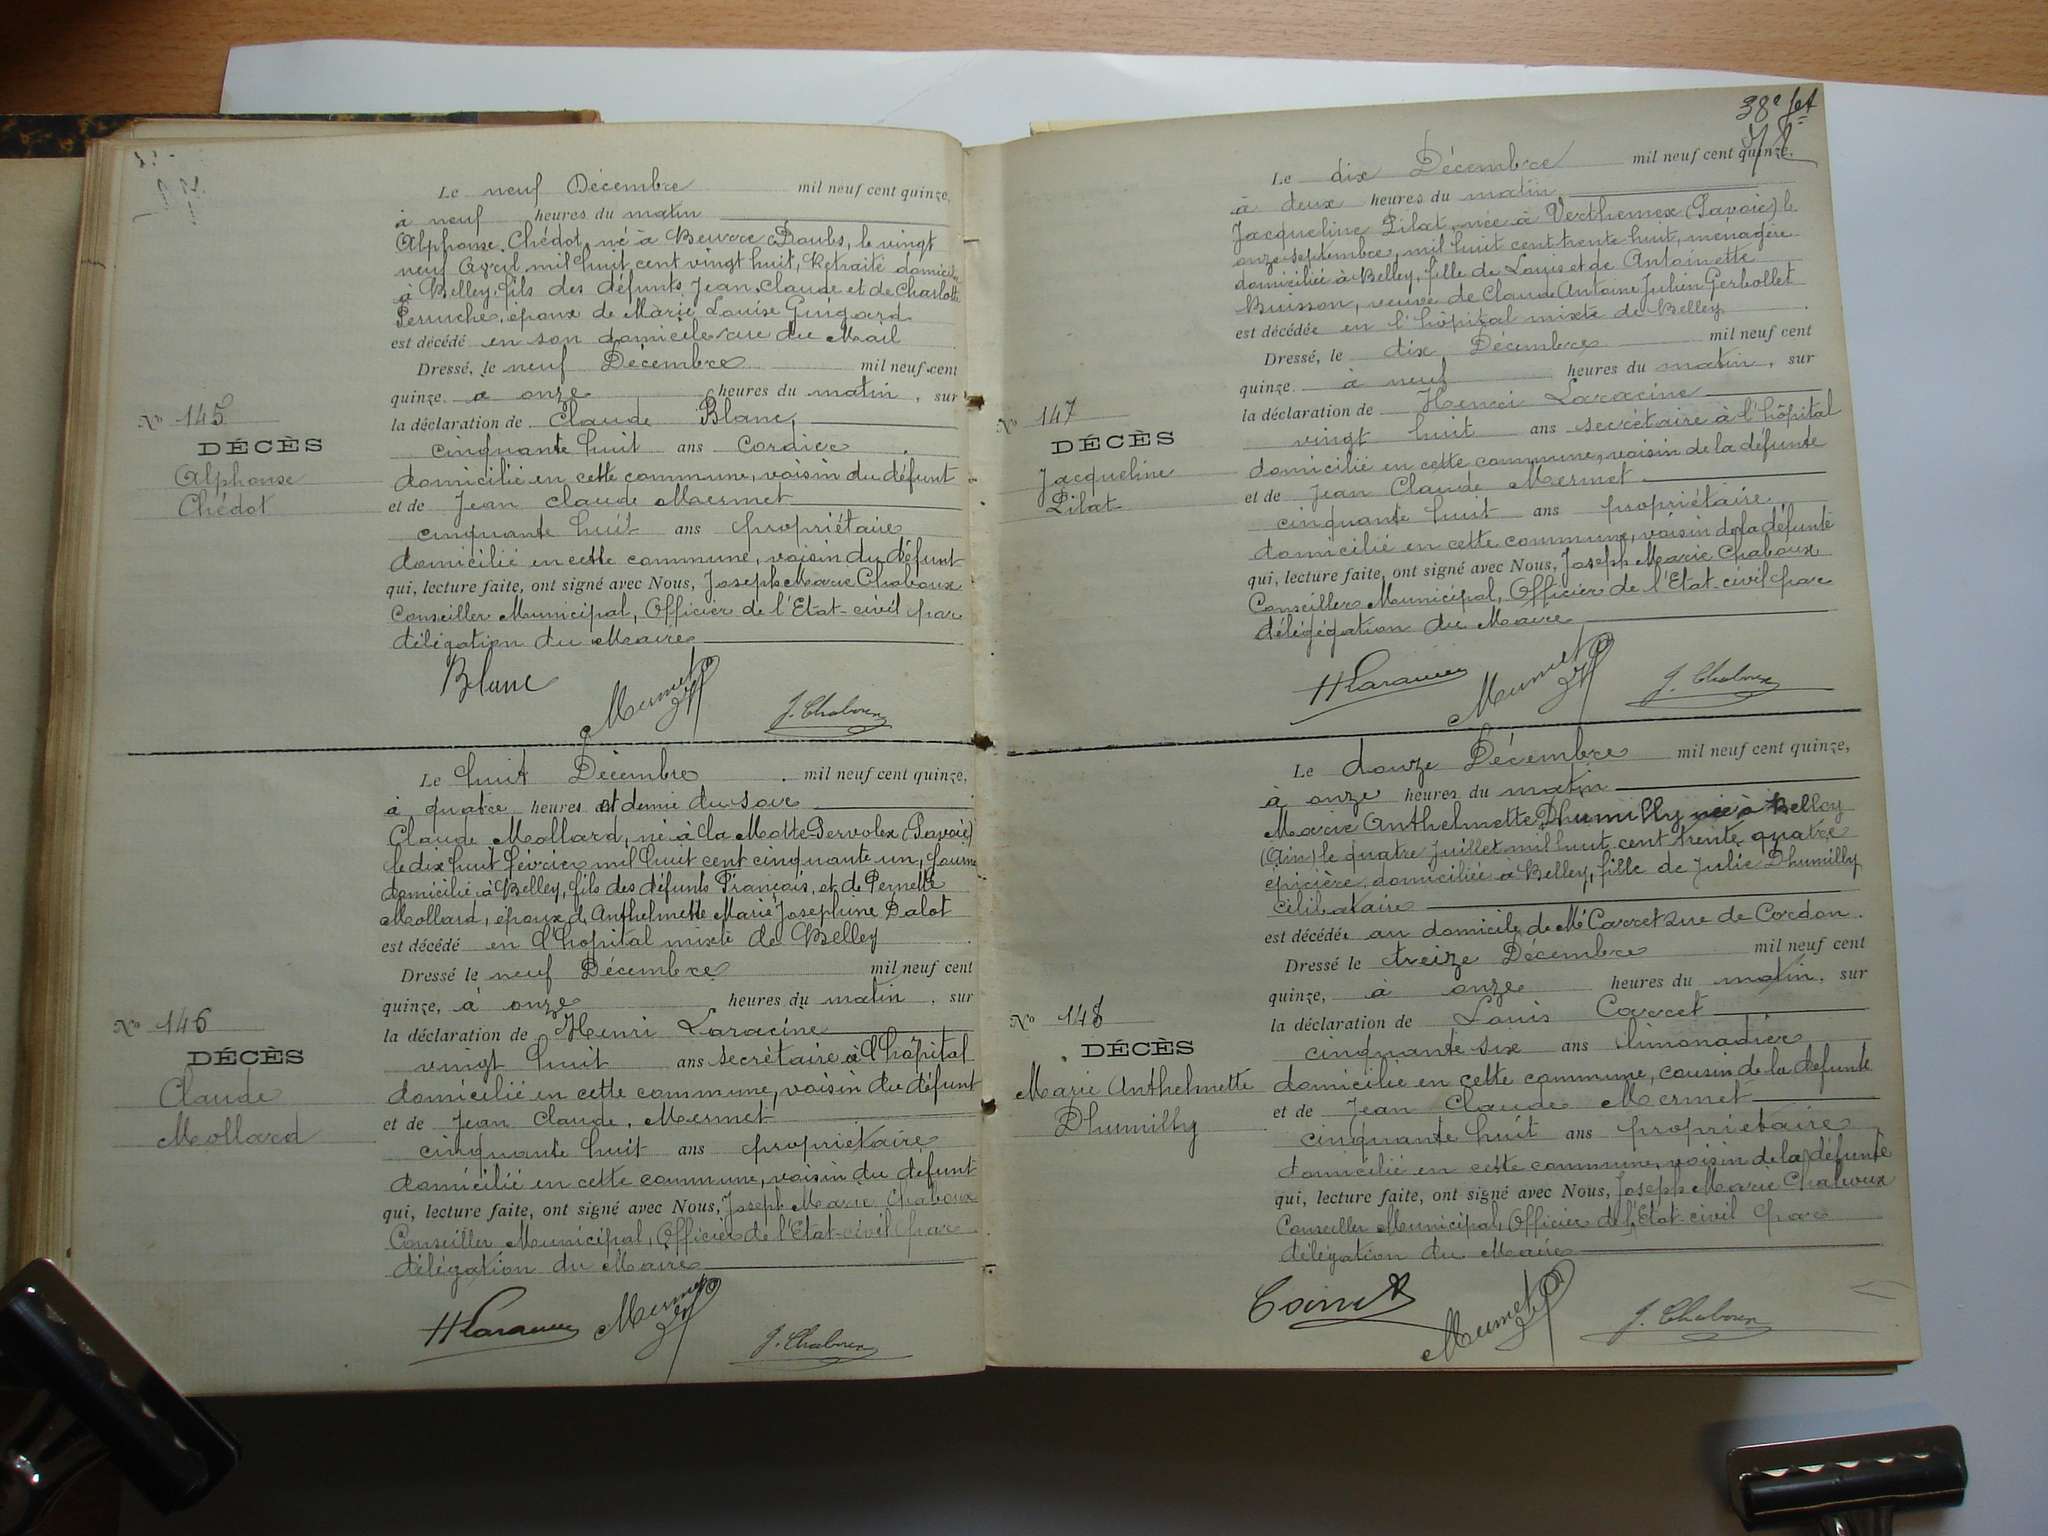 Le neuf Décembre mil neuf cent quinze,
à neuf heures du matin
Alphonse Chédot, né à Beurre Doubs, le vingt
neuf Avril mil huit cent vingt huit, Retraité domicilié
à Belley, fils des défunts Jean Claude et de Charlotte
Peruche, époux de Marie Louise Gingard
est décédé en son domicile rue du Mail
Dressé, le neuf Décembre mil neuf cent
quinze à onze heures du matin, sur
la déclaration de Claude Blanc,
cinquante huit ans Cordier
domicilié en cette commune, voisin du défunt
et de Jean Claude Mermet
cinquante huit ans propriétaire
domicilié en cette commune, voisin du défunt
qui, lecture faite, ont signé avec Nous, Joseph Marie Chaboux
Conseiller Municipal, Officier de l'Etat-civil par
délégation du Maire
Blanc Mermet J. Chaboux
No 145
DÉCÈS
Alphonse
Chédot
Le huit Décembre mil neuf cent quinze,
à quatre heures et demie du soir
Claude Mollard, né à la Motte Servolex (Savoie)
le dix huit février mil huit cent cinquante un,
domicilié à Belley, fils des défunts François, et de Pernette
Mollard, époux d'Anthelmette Marie Josephine Dalot
est décédé en l'hopital mixte de Belley
Dressé le neuf Décembre mil neuf cent
quinze, à onze heures du matin, sur
la déclaration de Henri Laracine
vingt huit ans secrétaire à l'hôpital
domicilié en cette commune, voisin du défunt
et de Jean Claude Mermet
cinquante huit ans propriétaire
domicilié en cette commune, voisin du défunt
qui, lecture faite, ont signé avec Nous, Joseph Marie Chaboux
Conseiller Municipal, Officier de l'Etat-civil par
délégation du Maire
HLaracine Mermet J. Chaboux
No 146
DÉCÈS
Claude
Mollard
38e fet
Le dix Décembre mil neuf cent quinze,
à deux heures du matin
Jacqueline Pilat, née à Verthemex (Savoie) le
onze septembre, mil huit cent trente huit, ménagère
domiciliée à Belley, fille de Louis et de Antoinette
Buisson, veuve de Claude Antoine Julien Gerbollet
est décédée en l'hôpital mixte de Belley
Dressé, le dix Décembre mil neuf cent
quinze à neuf heures du matin, sur
la déclaration de Henri Laracine
vingt huit ans secrétaire à l'hôpital
domicilié en cette commune, voisin de la défunte
et de Jean Claude Mermet
cinquante huit ans propriétaire
domicilié en cette commune, voisin de la défunte
qui, lecture faite, ont signé avec Nous, Joseph Marie Chaboux
Conseiller Municipal, Officier de l'Etat-civil par
délégégation du Maire
HLaracine Mermet J. Chaboux
No 147
DÉCÈS
Jacqueline
Pilat
Le douze Décembre mil neuf cent quinze,
à onze heures du matin
Marie Anthelmette Dhumilly née à Belley
(Ain) le quatre juillet mil huit cent trente quatre
épicière, domiciliée à Belley, fille de Julie Dhumilly
célibataire
est décédée au domicile de Mr Carret rue de Cordon.
Dressé le treize Décembre mil neuf cent
quinze, à onze heures du matin, sur
la déclaration de Louis Carret
cinquante six ans limonadier
domicilié en cette commune, cousin de la défunte
et de Jean Claude Mermet
cinquante huit ans propriétaire
domicilié en cette commune, voisin de la défunte
qui, lecture faite, ont signé avec Nous, Joseph Marie Chaboux
Conseiller Municipal, Officier de l'Etat-civil par
délégation du Maire
Mermet J. Chaboux
No 148
DÉCÈS
Marie Anthelmette
Dhumilly